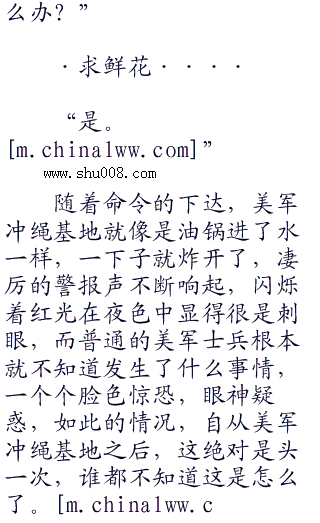 么办？”
·求鲜花····
“是。
[m.china1ww.com]”
www.shu008.com
随着命令的下达，美军
冲绳基地就像是油锅进了水
一样，一下子就炸开了，凄
厉的警报声不断响起，闪烁
着红光在夜色中显得很是刺
眼，而普通的美军士兵根本
就不知道发生了什么事情，
一个个脸色惊恐，眼神疑
惑，如此的情况，自从美军
冲绳基地之后，这绝对是头
一次，谁都不知道这是怎么
了。[m.china1ww.c